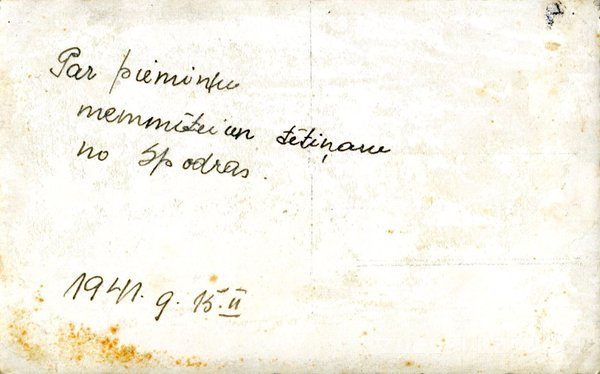 Par piemiņu
memmītei un tētiņam
no Spodras.
1941. g. 15. II